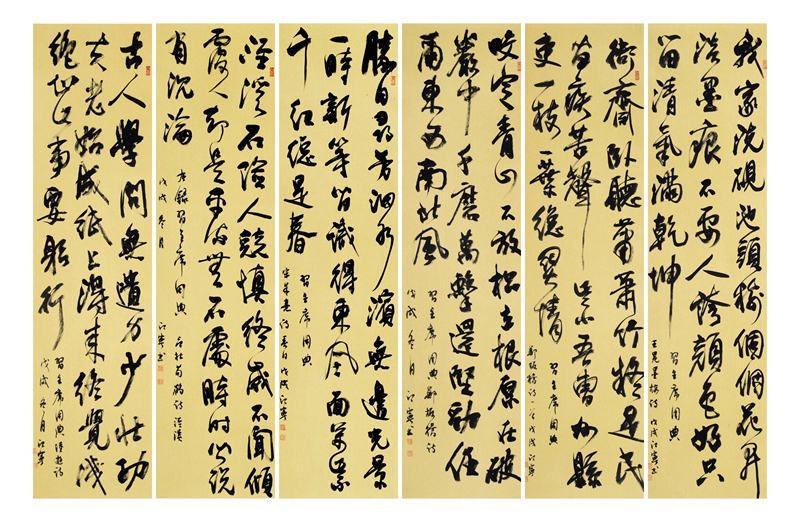 我家洗硯池頭樹個個花開
淡墨痕不要人誇顏色好只
留清氣滿乾坤
習主席用典
王冕墨梅詩 戊戌江寧書
衙齋臥聽蕭蕭竹疑是民
間疾苦聲些小吾曹州縣
吏一枝一葉總關情
習主席用典
鄭板橋詩一首戊戌江寧
咬定青山不放松立根原在破
巖中千磨萬擊還堅勁任
爾東西南北風
習主席用典鄭板橋詩
戊戌冬月 江寧書
勝日尋芳泗水濱無邊光景
一時新等閑識得東風面萬紫
千紅總是春
習主席用典
宋朱熹詩春日戊戌江寧
涇溪石險人競慎終歲不聞傾
覆人却是平流無石處時時聞說
有沉淪
習主席用典 杜荀鶴詩涇溪
戊戌冬月 江寧書
古人學問無遺力少壯功
夫老始成紙上得來終覺淺
絕知此事要躬行
習主席用典陸游詩
戊戌冬月江寧